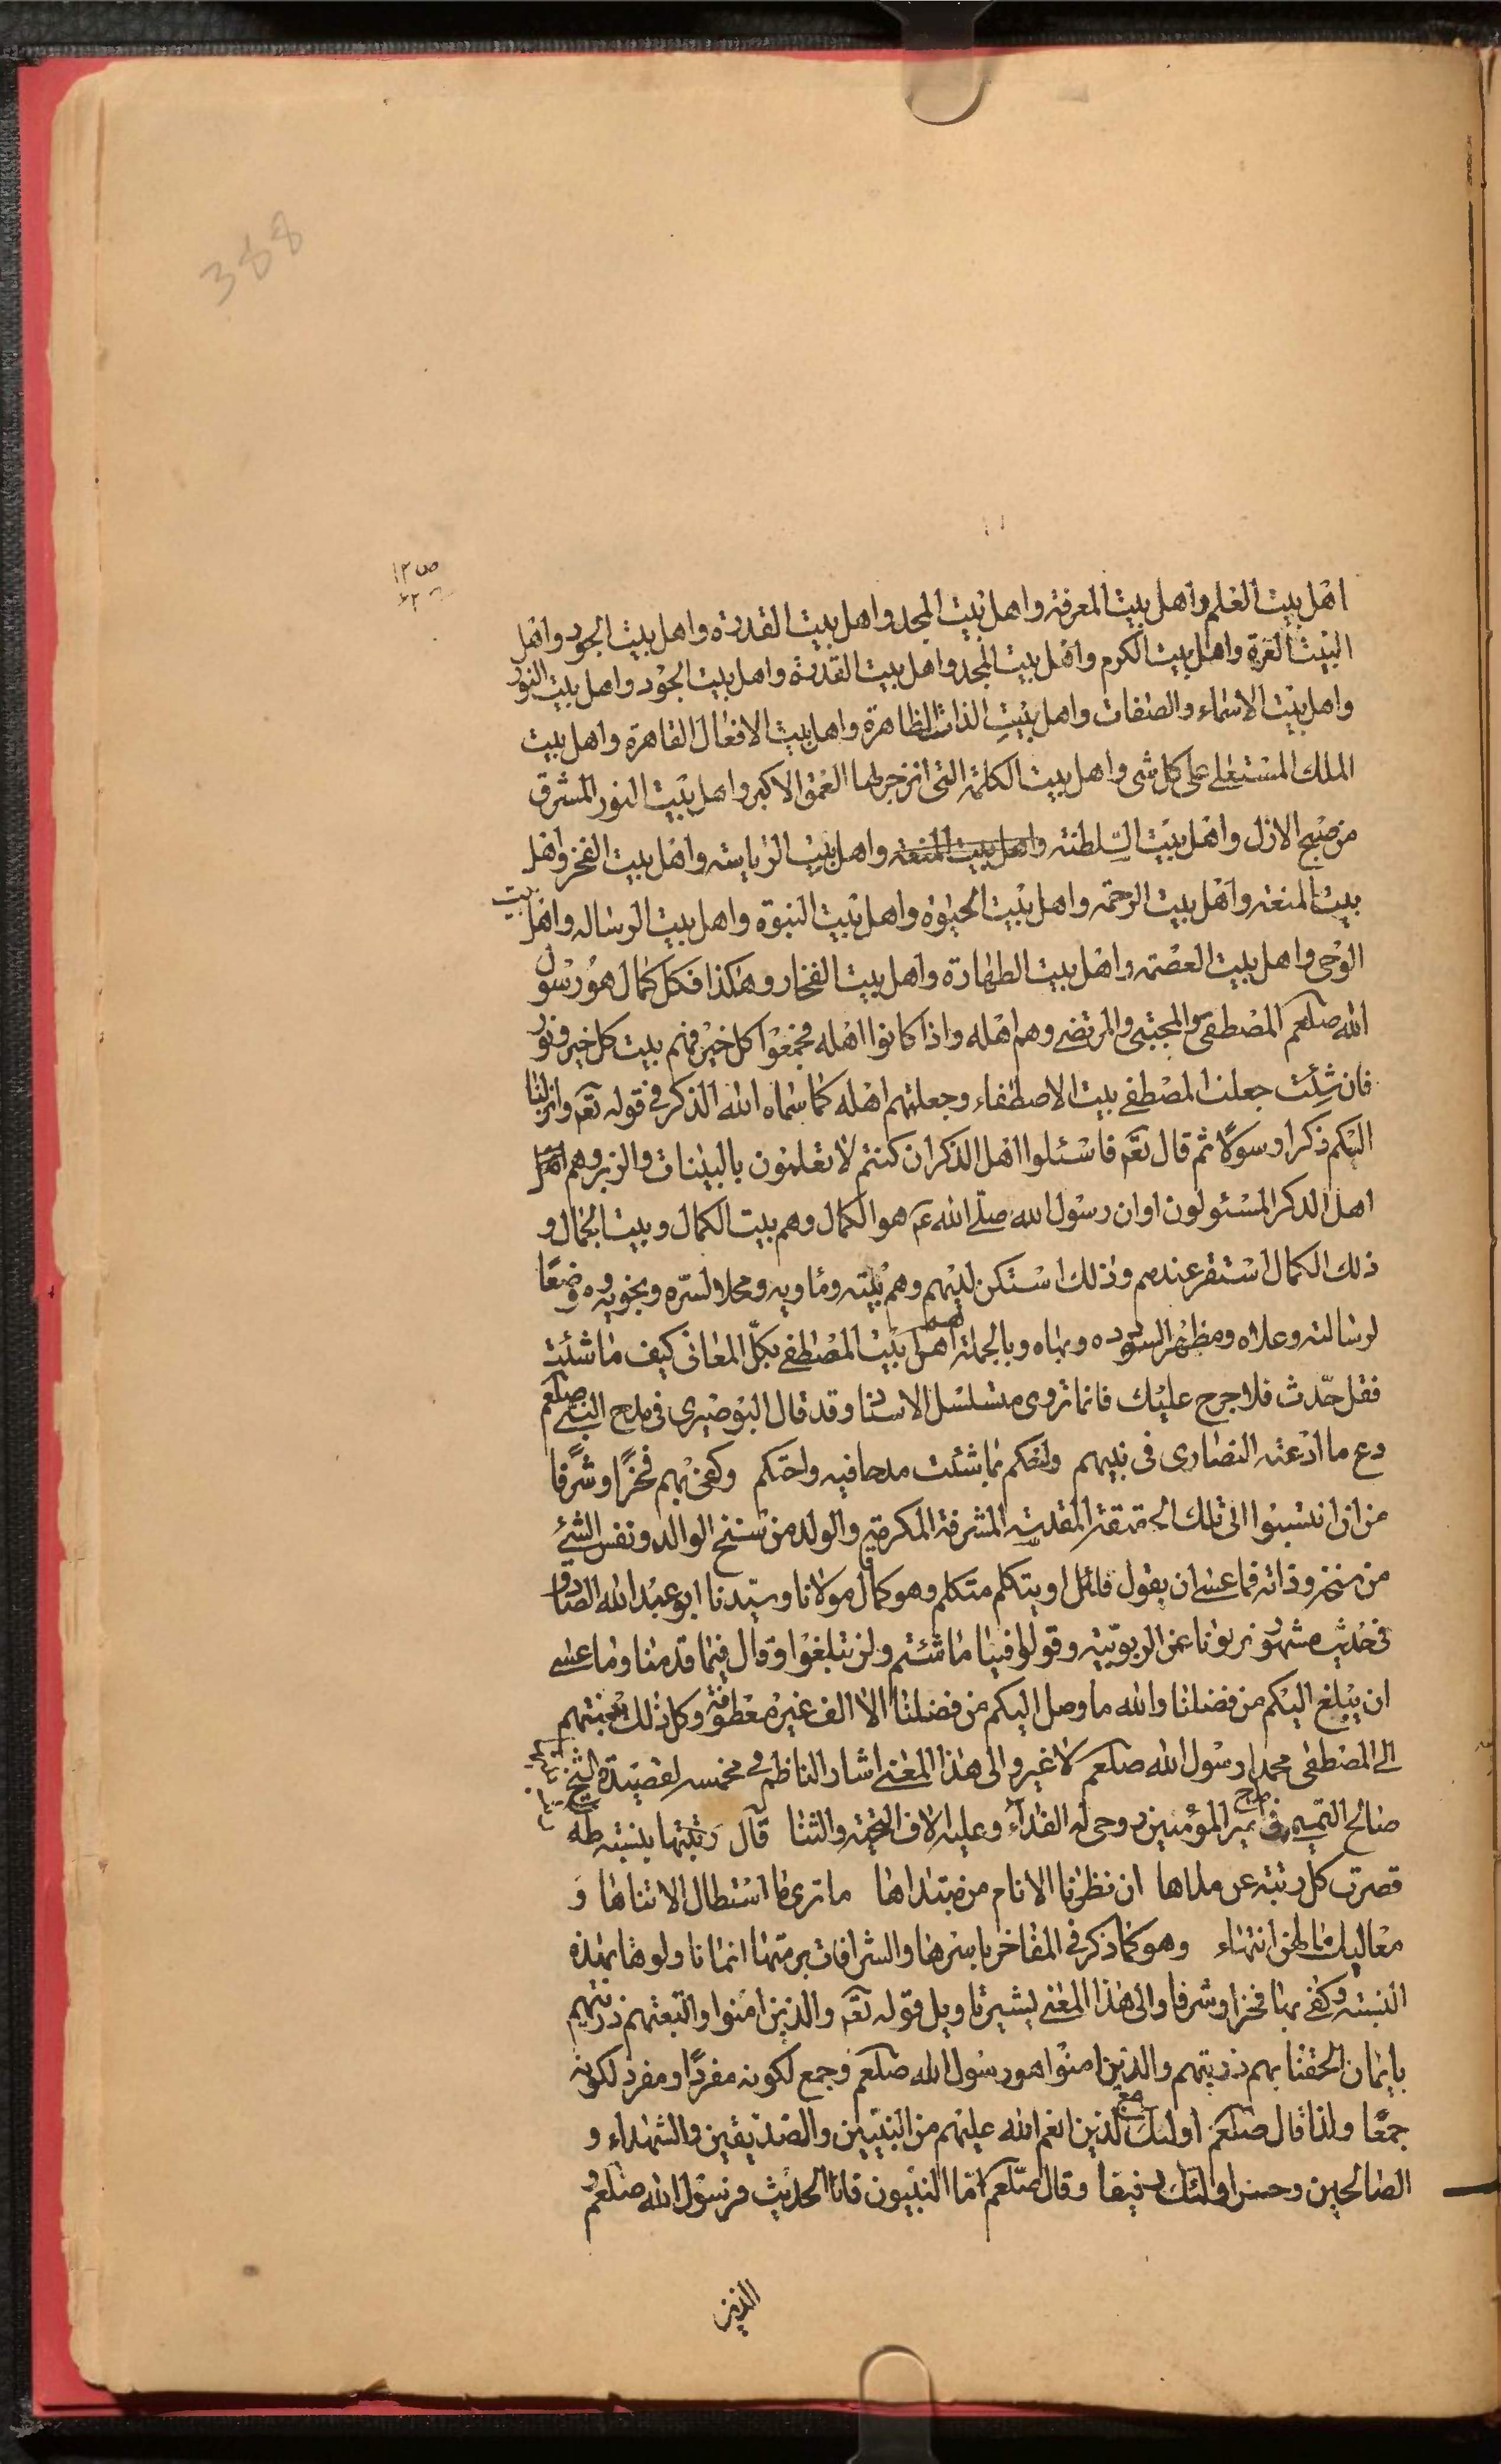 388
ص ١٣
اهل بيت العلم واهل بيت المعرفة واهل بيت المجد واهل بيت القدرة واهل بيت الجود واهل
البيت العزة واهل بيت الكرم واهل بيت المجد واهل بيت القدرة واهل بيت الجود واهل بيت النور
واهل بيت الاسماء والصفات واهل بيت الذات الظاهرة واهل بيت الافعال القاهرة واهل بيت
الملك المستعلي على كل شى واهل بيت الكلمة التى انزجر لها العمق الاكبر واهل بيت النور المشرق
من صبح الازل واهل بيت السلطنة واهل بيت المنعة واهل بيت الرياسته واهل بيت الفخر واهل
بيت المنعة واهل بيت الرحمة واهل بيت الحيوة واهل بيت النبوة واهل بيت الرساله واهل بيت
الوحى واهل بيت العصمة واهل بيت الطهارة واهل بيت الفخار وهكذا فكل كمال هو رسول
الله صلعم المصطفى والمجتبى والمرتضى وهم اهله واذا كانوا اهله فجمعوا كل خير فهم بيت كل خير ونور
فان شئت جعلت المصطفى بيت الاصطفاء وجعلتهم اهله كما سماه الله الذكر فى قوله تعم وانزلنا
اليكم ذكرا رسولا ثم قال تعم فاسئلوا اهل الذكر ان كنتم لا تعلمون بالبينات والزبر وهم اهل
اهل الذكر المسئولون او ان رسول الله صلى الله عم هو الكمال وهم بيت الكمال وبيت الجمال و
ذلك الكمال استقر عندهم وذلك استكن لديهم وهم بيته وماويه ومحلا لسره ونجويه وموضعا
لرسالته وعلاه ومظهرا لسودده وبهاه وبالجملة اهل بيت المصطفى بكل المعانى كيف ما شئت
فقل حدث فلا حرج عليك فانما تروى متسلسل الاسنا وقد قال البوصيرى فى مدح النبى صلعم
دع ما ادعته النصارى فى نبيهم واحكم بما شئت مدحا فيه واحتكم وكفى بهم فخرا وشرفا
من ان انتسبوا الى تلك الحقيقة المقدسة المشرفة المكرمة والولد من سنخ الوالد ونفس الشئ
من سنخه وذاته فما عسى ان يقول قائل او يتكلم متكلم وهو كما قال مولانا وسيدنا ابو عبد الله الصادق
فى حديث مشهور نزهونا عن الربوبية وقولوا فينا ما شئتم ولن تبلغوا وقال فيما قدمنا وما عسى
ان يبلغ اليكم من فضلنا والله ما وصل اليكم من فضلنا الا الف غير معطوفة وكل ذلك نسبتهم
الى المصطفى محمد رسول الله صلعم لا غير والى هذا المعنى اشار الناظم فى مخمسه لقصيدة الشيخ
صالح التميمى فى مدح امير المؤمنين روحى له الفداء وعليه الاف التحية والثنا قال رتبتها بنسبته طه
قصرت كل رتبة عن مداها ان نظرنا الانام من مبتداها ما ترى ما استطال الا تناها و
معاليك ما لهن انتهاء وهو كما ذكر فى المفاخر باسرها والشرافات برمتها انما نا ولوها بهذه
النسبة وكفى بها فخرا وشرفا والى هذا المعنى يشير تاويل قوله تعم والذين امنوا واتبعتهم ذريتهم
بايمان الحقنا بهم ذريتهم والذين امنوا هو رسول الله صلعم وجمع لكونه مفردا ومفرد لكونه
جمعا ولذا قال صلعم اولئك مع الذين انعم الله عليهم من النبيين والصديقين والشهداء و
الصالحين وحسن اولئك رفيقا وقال صلعم اما النبيون فانا الحديث فرسول الله صلعم هو
الذين